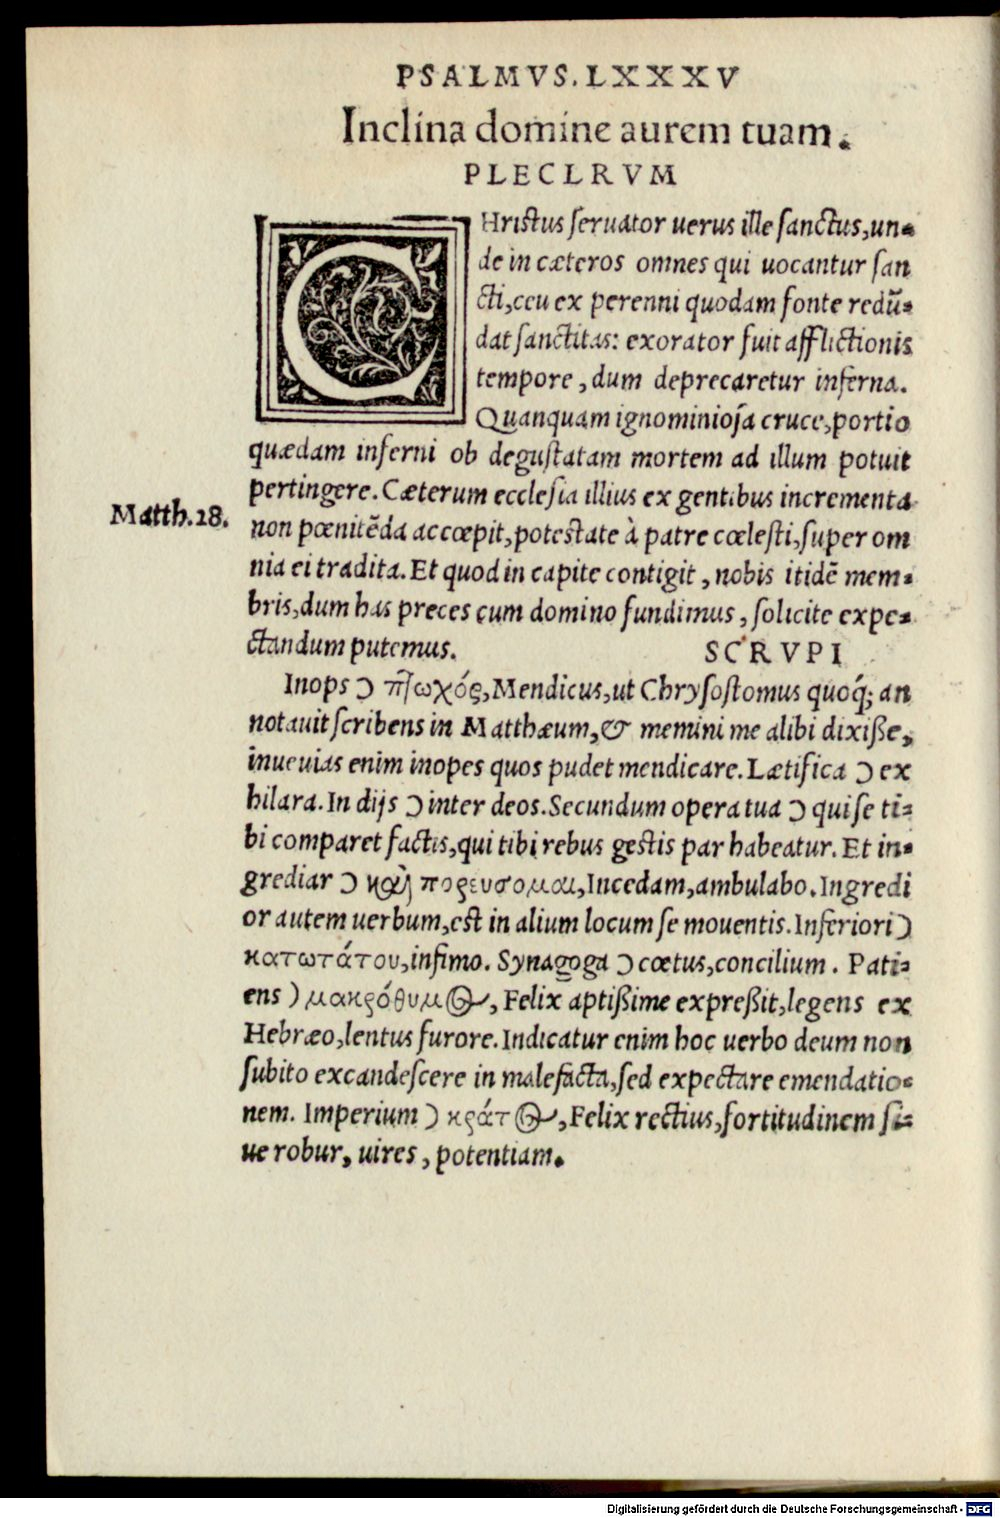 PSALMVS.LXXXV
Inclina domine aurem tuam.
PLECLRVM
CHristus seruator uerus ille sanctus,un-
de in cæteros omnes qui uocantur san
cti,ceu ex perenni quodam fonte redū-
dat sanctitas: exorator fuit afflictionis
tempore, dum deprecaretur inferna.
Quanquam ignominiosa cruce,portio
quædam inferni ob degustatam mortem ad illum potuit
pertingere. Cæterum ecclesia illius ex gentibus incrementa
Matth.28.
non pœnitēda accœpit,potestate à patre cœlesti,super om
nia ei tradita. Et quod in capite contigit, nobis itidē mem-
bris,dum has preces cum domino fundimus, solicite expe-
ctandum putemus. SCRVPI
Inops Ɔ πτωχός,Mendicus,ut Chrysostomus quoq; an
notauit scribens in Matthæum,& memini me alibi dixisse,
inueuias enim inopes quos pudet mendicare. Lætifica Ɔ ex
hilara. In dijs Ɔ inter deos. Secundum opera tua Ɔ qui se ti-
bi comparet factis,qui tibi rebus gestis par habeatur. Et in-
grediar Ɔ καὶ πορευσομαι,Incedam,ambulabo. Ingredi
or autem uerbum,est in alium locum se mouentis. Inferiori Ɔ
κατωτάτου,infimo. Synagoga Ɔ cœtus,concilium. Pati-
ens ) μακρόθυμος, Felix aptissime expressit,legens ex
Hebræo,lentus furore. Indicatur enim hoc uerbo deum non
subito excandescere in malefacta,sed expectare emendatio-
nem. Imperium ) κράτος, Felix rectius,fortitudinem si-
ue robur, uires, potentiam.
Digitalisierung gefördert durch die Deutsche Forschungsgemeinschaft - DFG